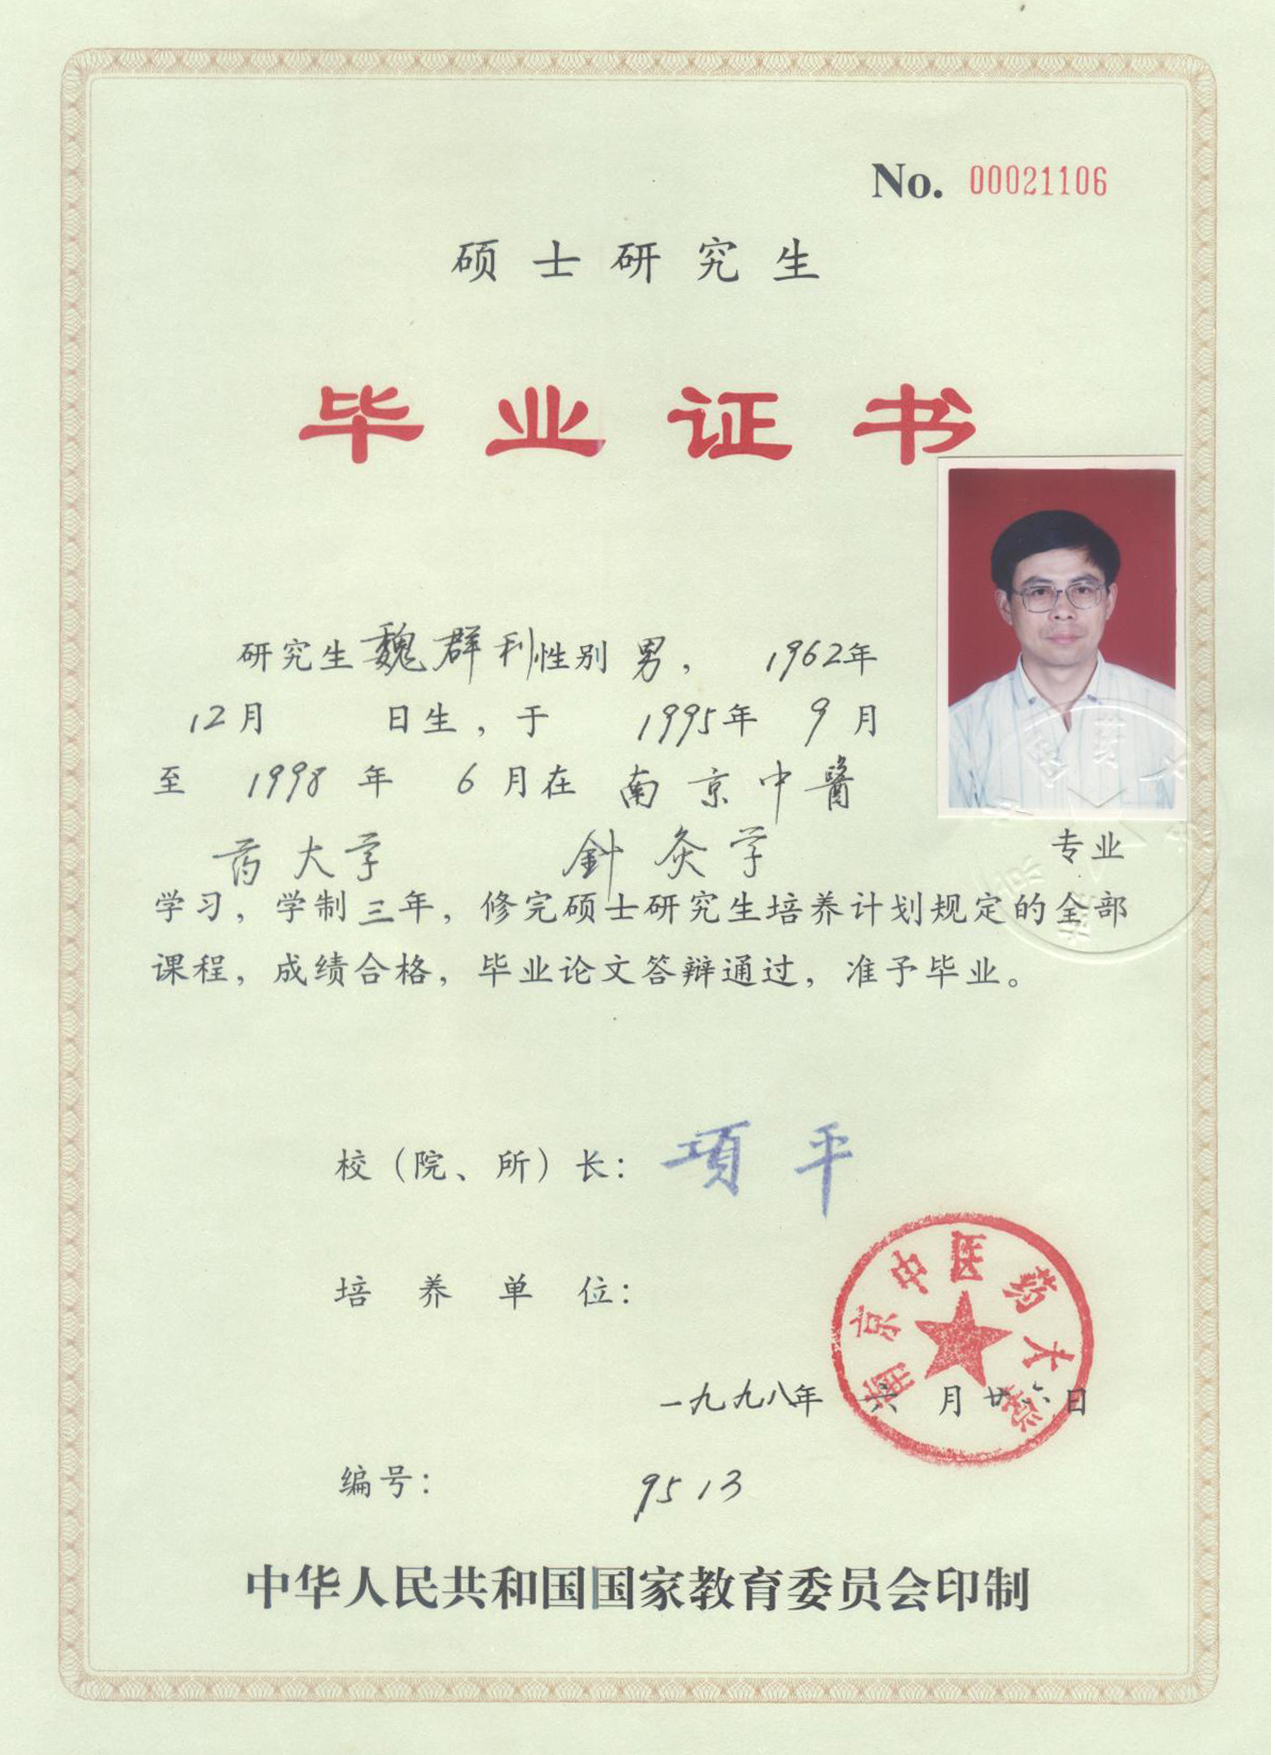 No. 00021106
硕士研究生
毕业证书
研究生魏群利性别男， 1962年
12月 日生，于 1995年 9月
至 1998年 6月在 南京中醫
药大学 針灸学 专业
学习，学制三年，修完硕士研究生培养计划规定的全部
课程，成绩合格，毕业论文答辩通过，准予毕业。
校（院、所）长：項平
培养单位：
南京中医药大学
一九九八年 六月廿六日
编号： 9513
中华人民共和国国家教育委员会印制